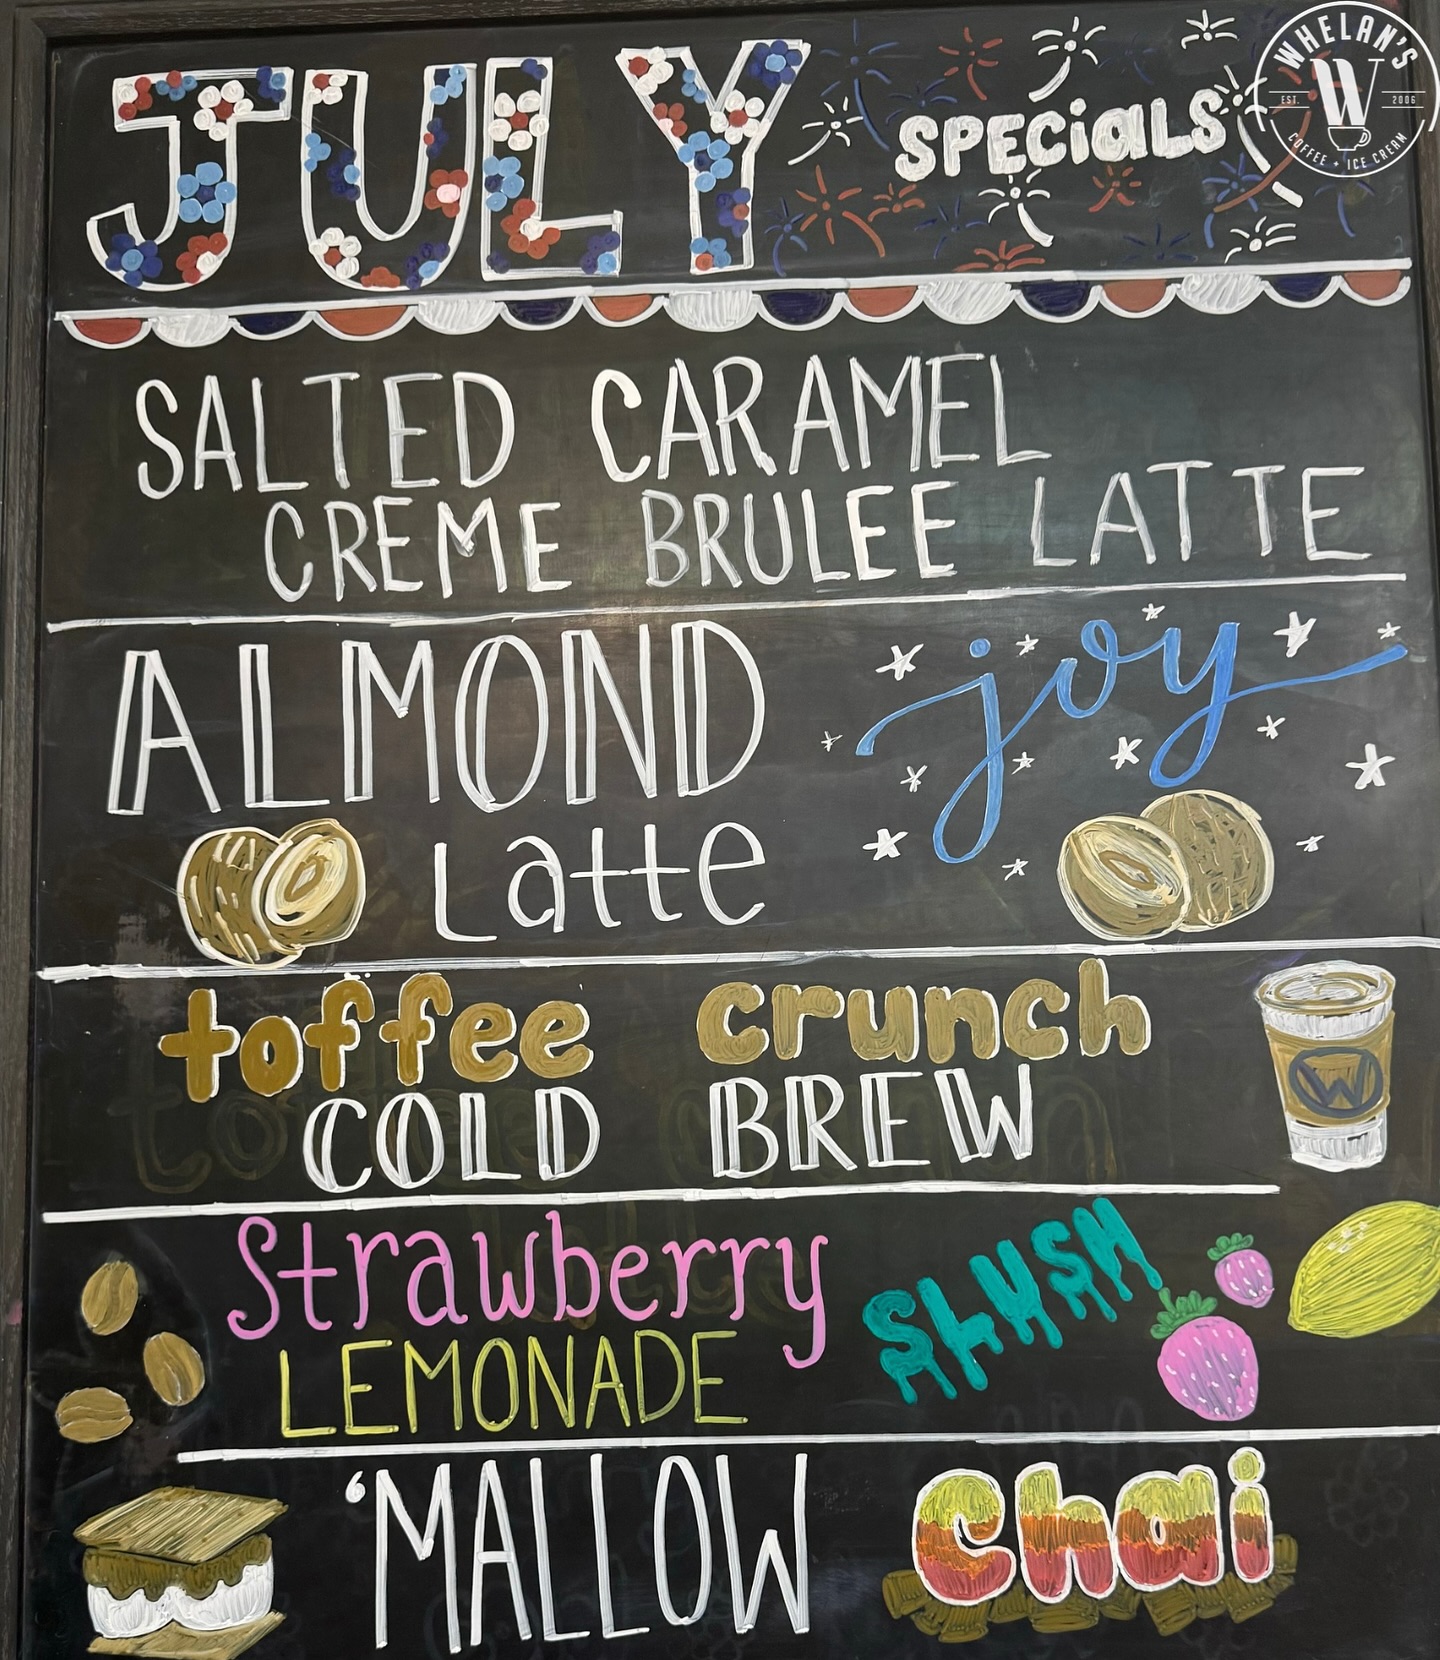 JULY SPECiALS
WHELAN'S
EST. W 2006
COFFEE + ICE CREAM
SALTED CARAMEL
CREME BRULEE LATTE
ALMOND joy
Latte
toffee crunch
COLD BREW
W
Strawberry SLUSH
LEMONADE
'MALLOW Chai